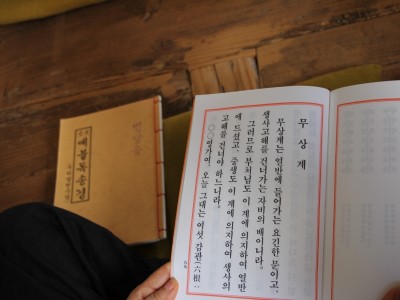 무상계
무상계는 열반에 들어가는 요긴한 문이고,
생사고해를 건너가는 자비의 배이니라.
그러므로 부처님도 이 계에 의지하여 열반
에 드셨고, 중생도 이 계에 의지하여 생사의
고해를 건너야 하느니라.
○○영가여, 오늘 그대는 여섯 감관(六根:
예불독송집